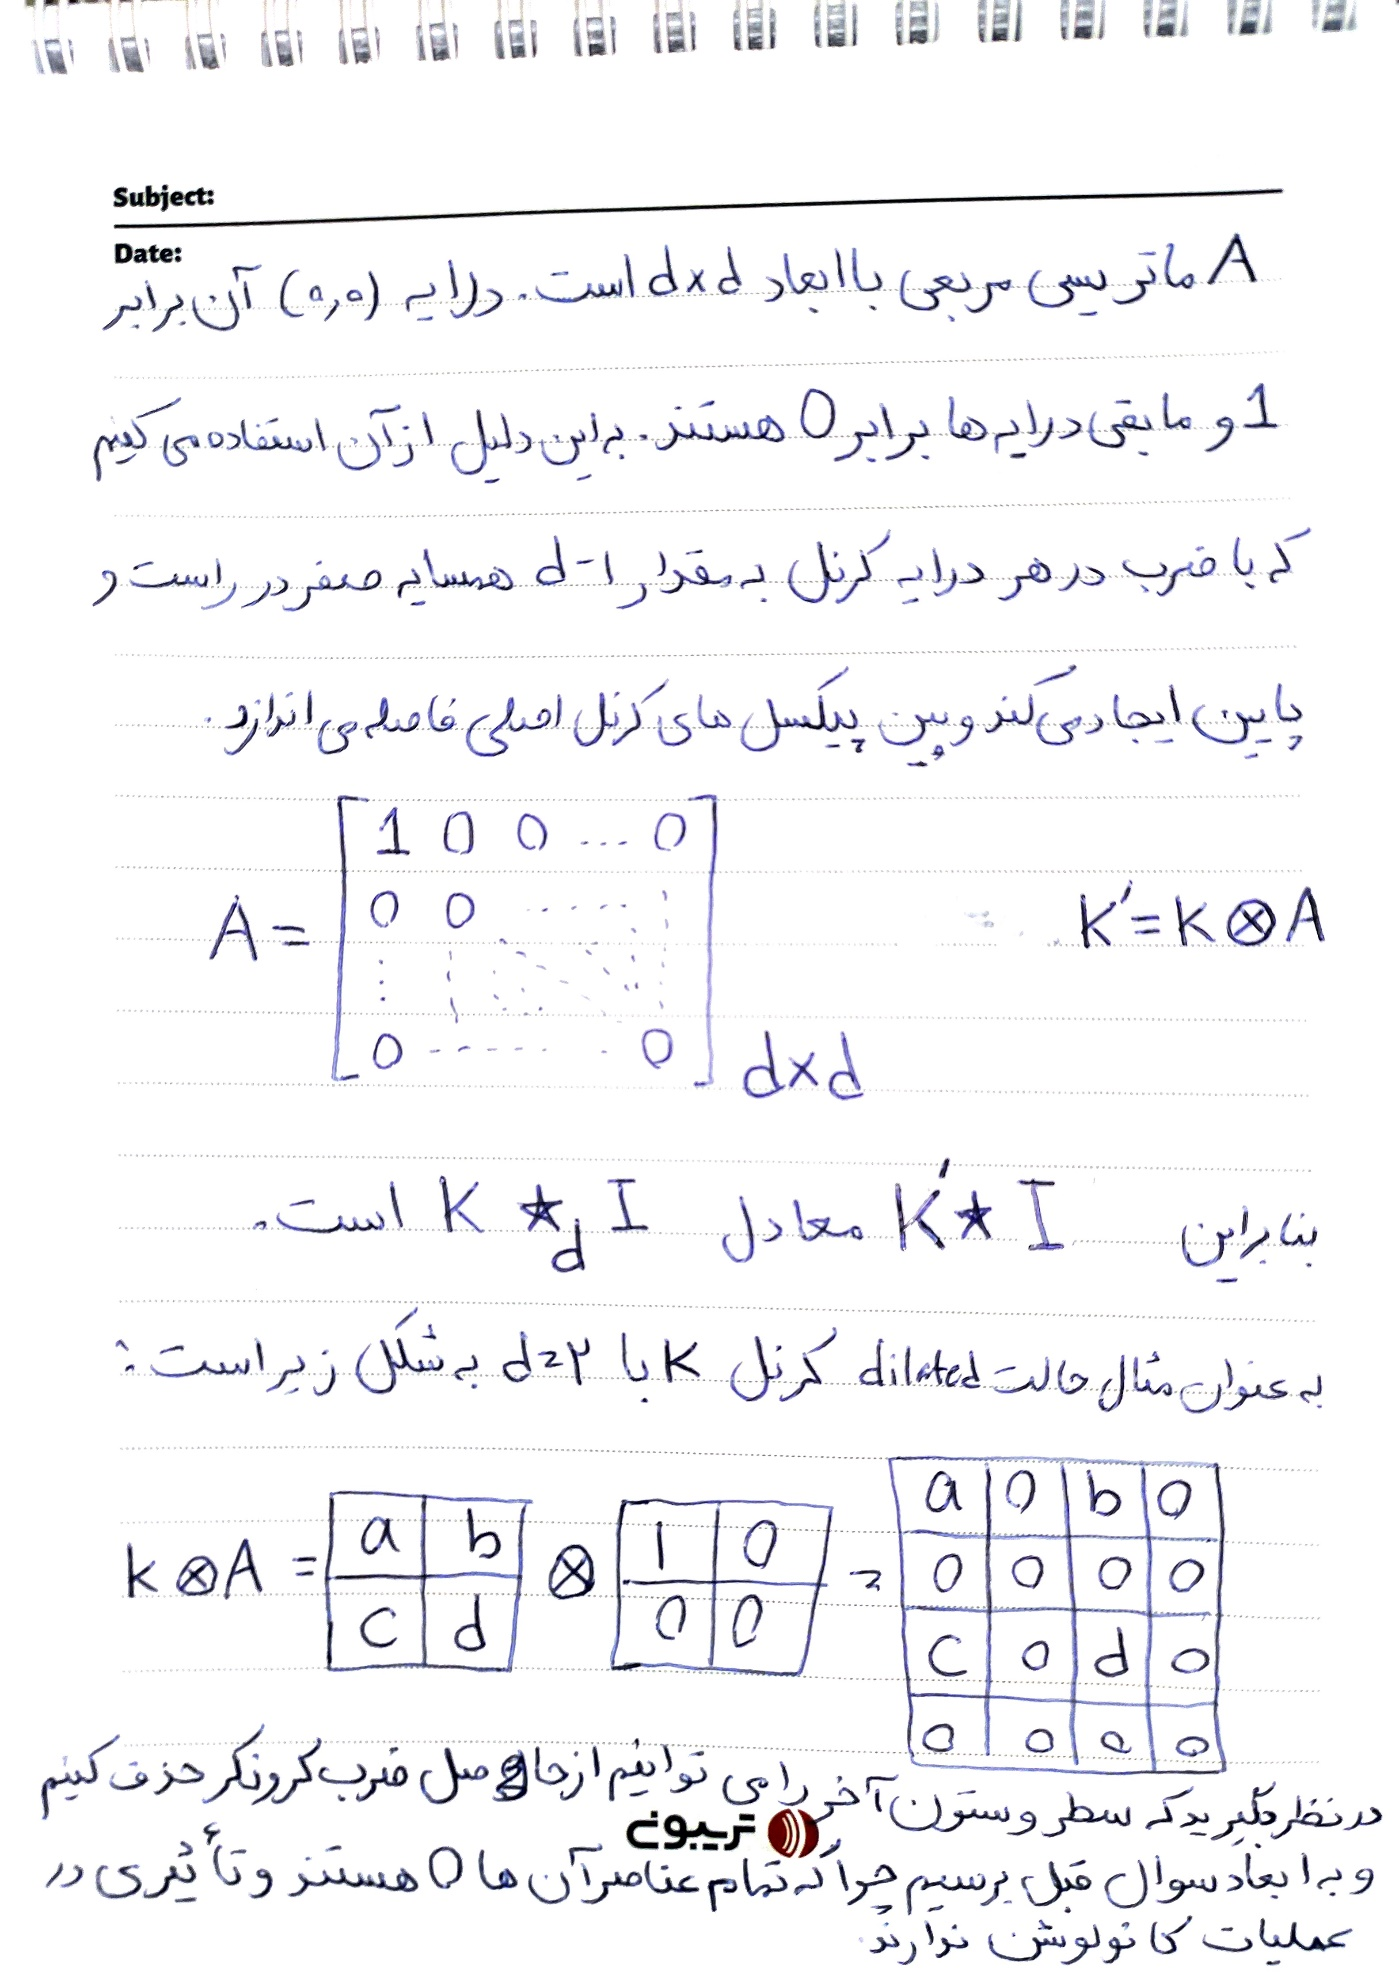 Subject:
Date:
A ماتریسی مربعی با ابعاد d×d است. درایه (۰,۰) آن برابر
1 و مابقی درایه ها برابر 0 هستند. به این دلیل از آن استفاده می کنیم
که با ضرب در هر درایه کرنل به مقدار d-1 همسایه صفر در راست و
پایین ایجاد می کند و بین پیکسل های کرنل اصلی فاصله می اندازد.
A = [1 0 0 ... 0
0 0 ...
⋮
0 ... 0] d×d
K' = K ⊗ A
بنابراین K' ★ I معادل K ★d I است.
به عنوان مثال حالت dilated کرنل K با d=۲ به شکل زیر است:
K ⊗ A = a b ⊗ 1 0 = a 0 b 0
0 0 0 0
c d 0 0 c 0 d 0
0 0 0 0
در نظر بگیرید که سطر و ستون آخر را می توانیم از حاصل ضرب کرونکر حذف کنیم
تریبون
و به ابعاد سوال قبل برسیم چرا که تمام عناصر آن ها 0 هستند و تأثیری در
عملیات کانولوشن ندارند.